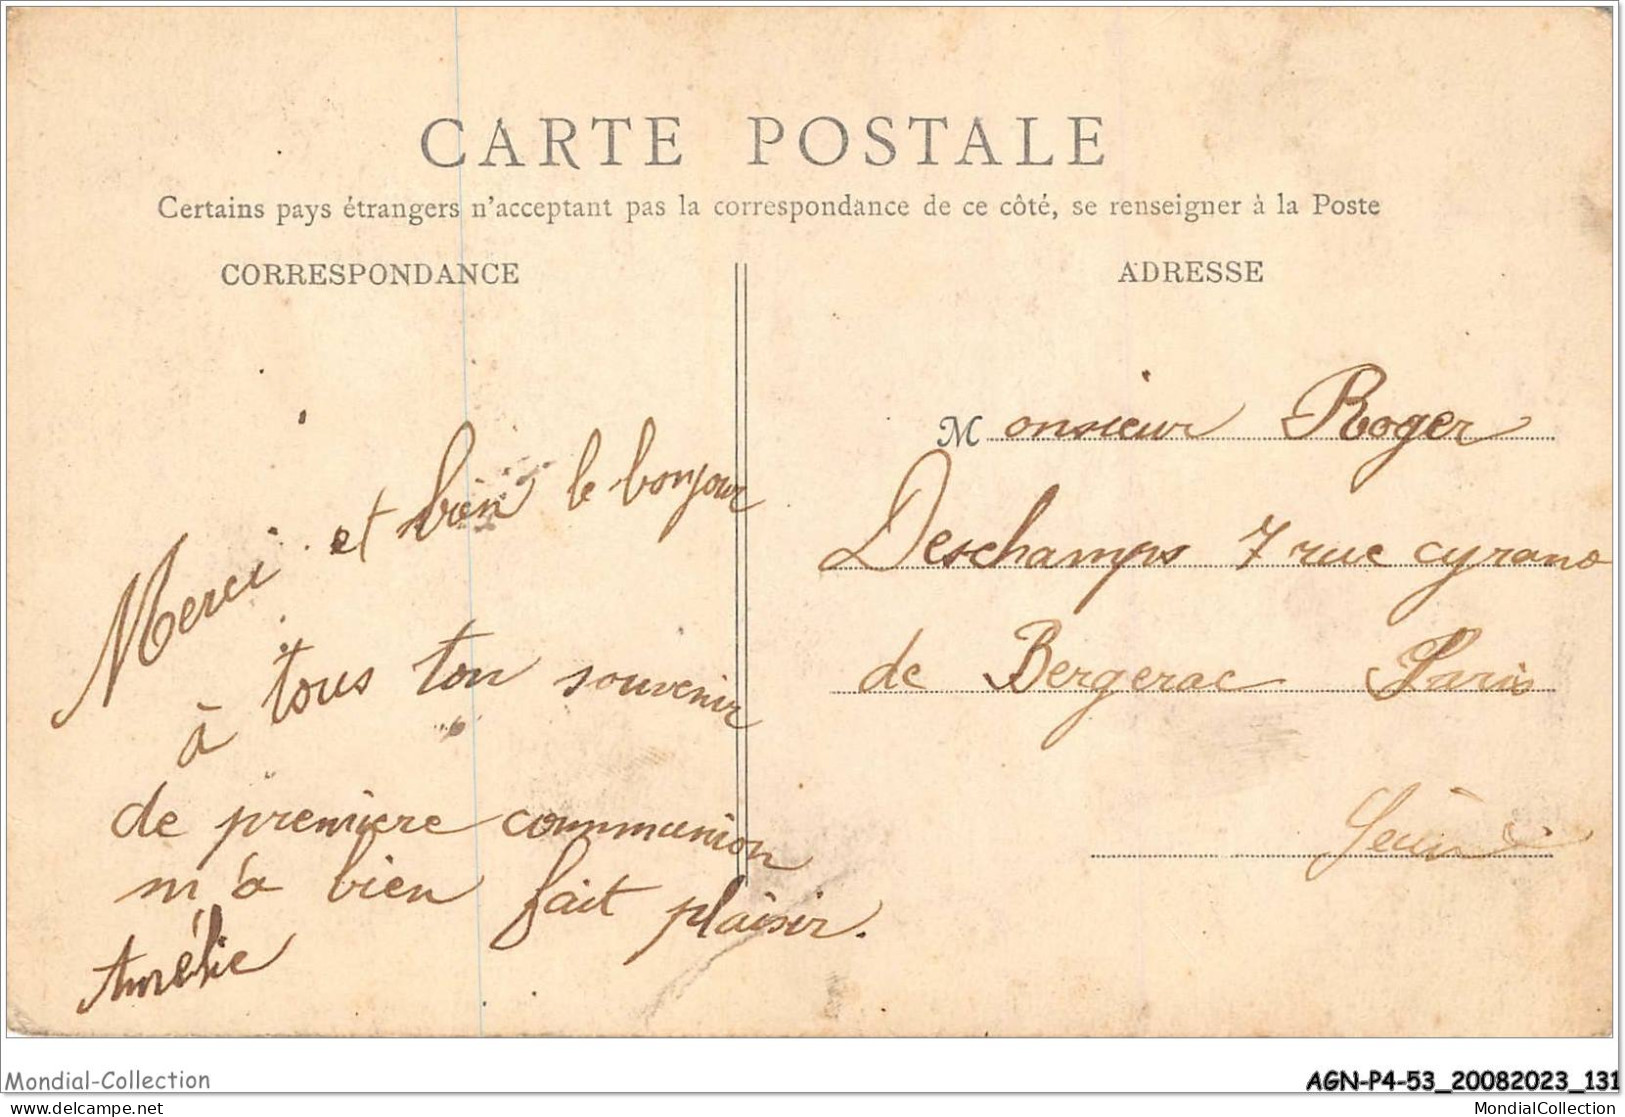 CARTE POSTALE
Certains pays étrangers n'acceptant pas la correspondance de ce côté, se renseigner à la Poste
CORRESPONDANCE
Merci et bien le bonjour
à tous ton souvenir
de première communion
m'a bien fait plaisir.
Aurélie
ADRESSE
Monsieur Roger
Deschamps 7 rue cyrano
de Bergerac Paris
Seine
Mondial-Collection
AGN-P4-53_20082023_131
delcampe.net
MondialCollection